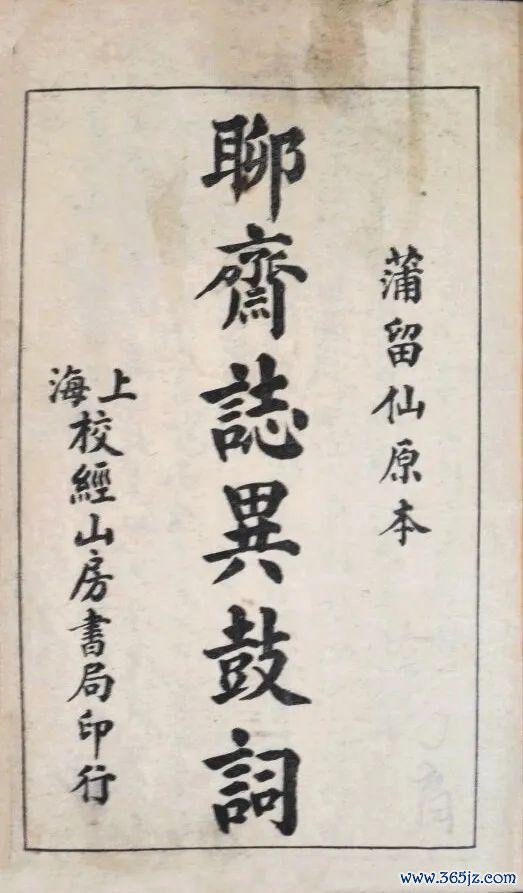 蒲留仙原本
聊齋誌異鼓詞
上海校經山房書局印行
www.365jz.com